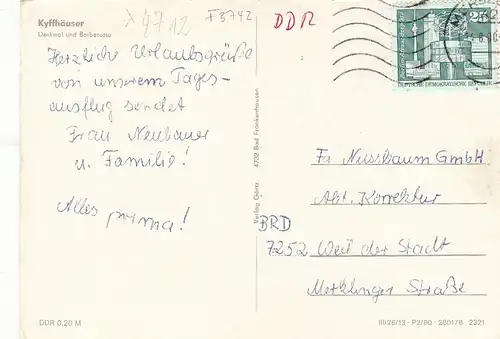 Kyffhäuser
Denkmal und Barbarossa
4712
F3742
DDR
25
DEUTSCHE DEMOKRATISCHE REPUBLIK
Herzliche Urlaubsgrüße
von unserem Tages-
ausflug sendet
Frau Neubauer
u. Familie!
Alles prima!
Verlag Görtz 4732 Bad Frankenhausen
Fa Nussbaum GmbH
Abt. Korrektur
BRD
7252 Weil der Stadt
Merklinger Straße
DDR 0,20 M
III/26/13 · P2/80 · 280178 2321